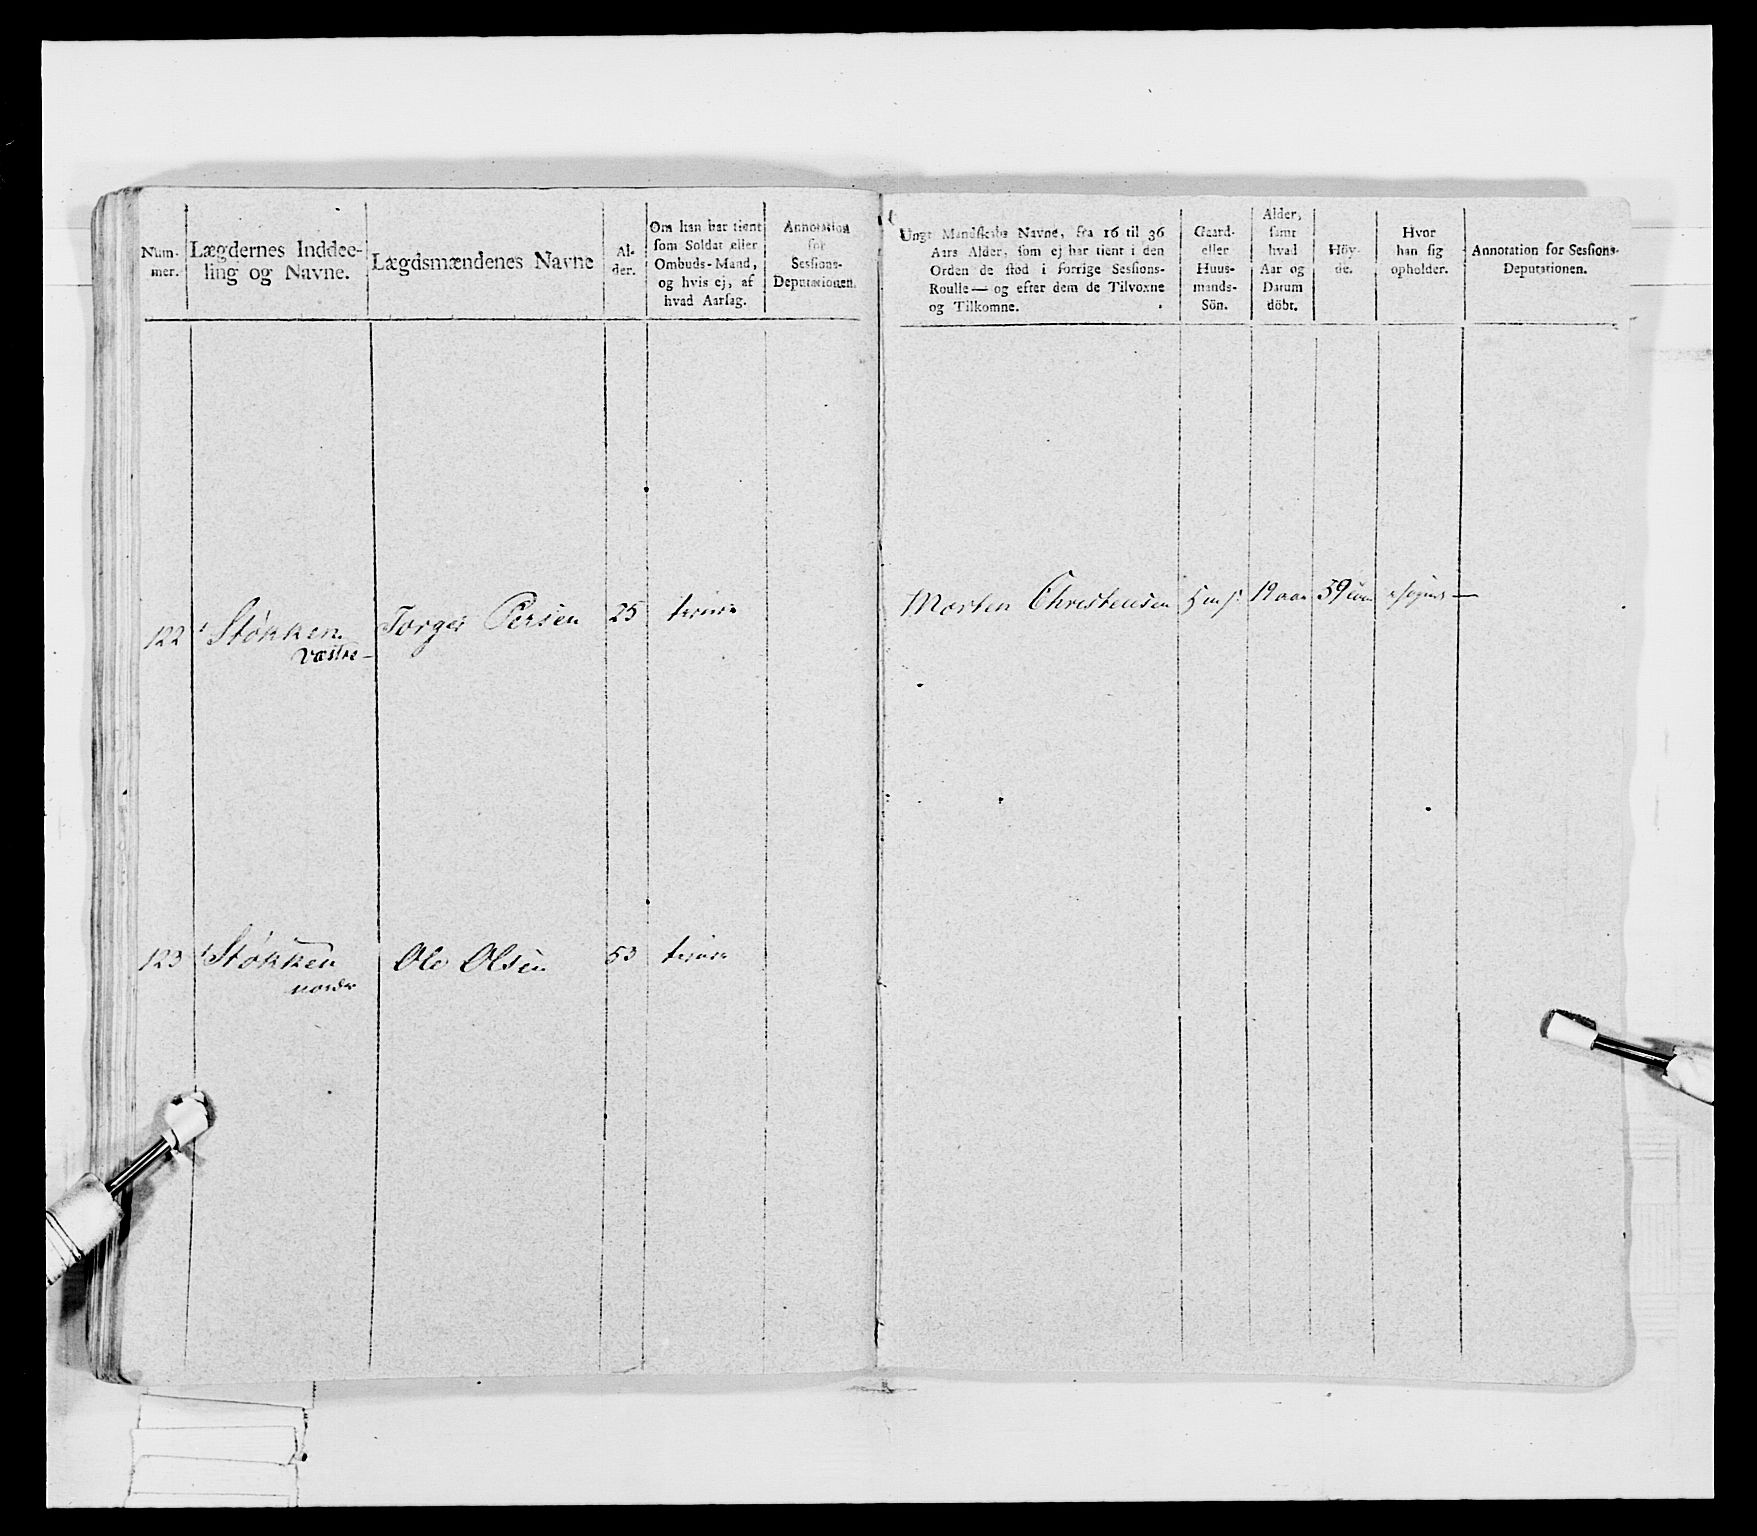 Num-
mer.
Lægdernes Inddee-
ling og Navne.
Lægdsmændenes Navne
Al-
der.
Om han har tient
som Soldat eller
Ombuds-Mand,
og hvis ej, af
hvad Aarsag.
Annotation
for
Sessions-
Deputationen.
122 Støkken Torger Persen 25 tienir
Væstre
123 Støkken Ole Olsen 53 tienir
nordr
Ungt Mandskabs Navne, fra 16 til 36
Aars Alder, som ej har tient i den
Orden de stod i forrige Sessions-
Roulle — og efter dem de Tilvoxne
og Tilkomne.
Gaard-
eller
Huus-
mands-
Sön.
Alder,
samt
hvad
Aar og
Datum
döbt.
Höy-
de.
Hvor
han sig
opholder.
Annotation for Sessions-
Deputationen.
Morten Christensen 19 aar 59